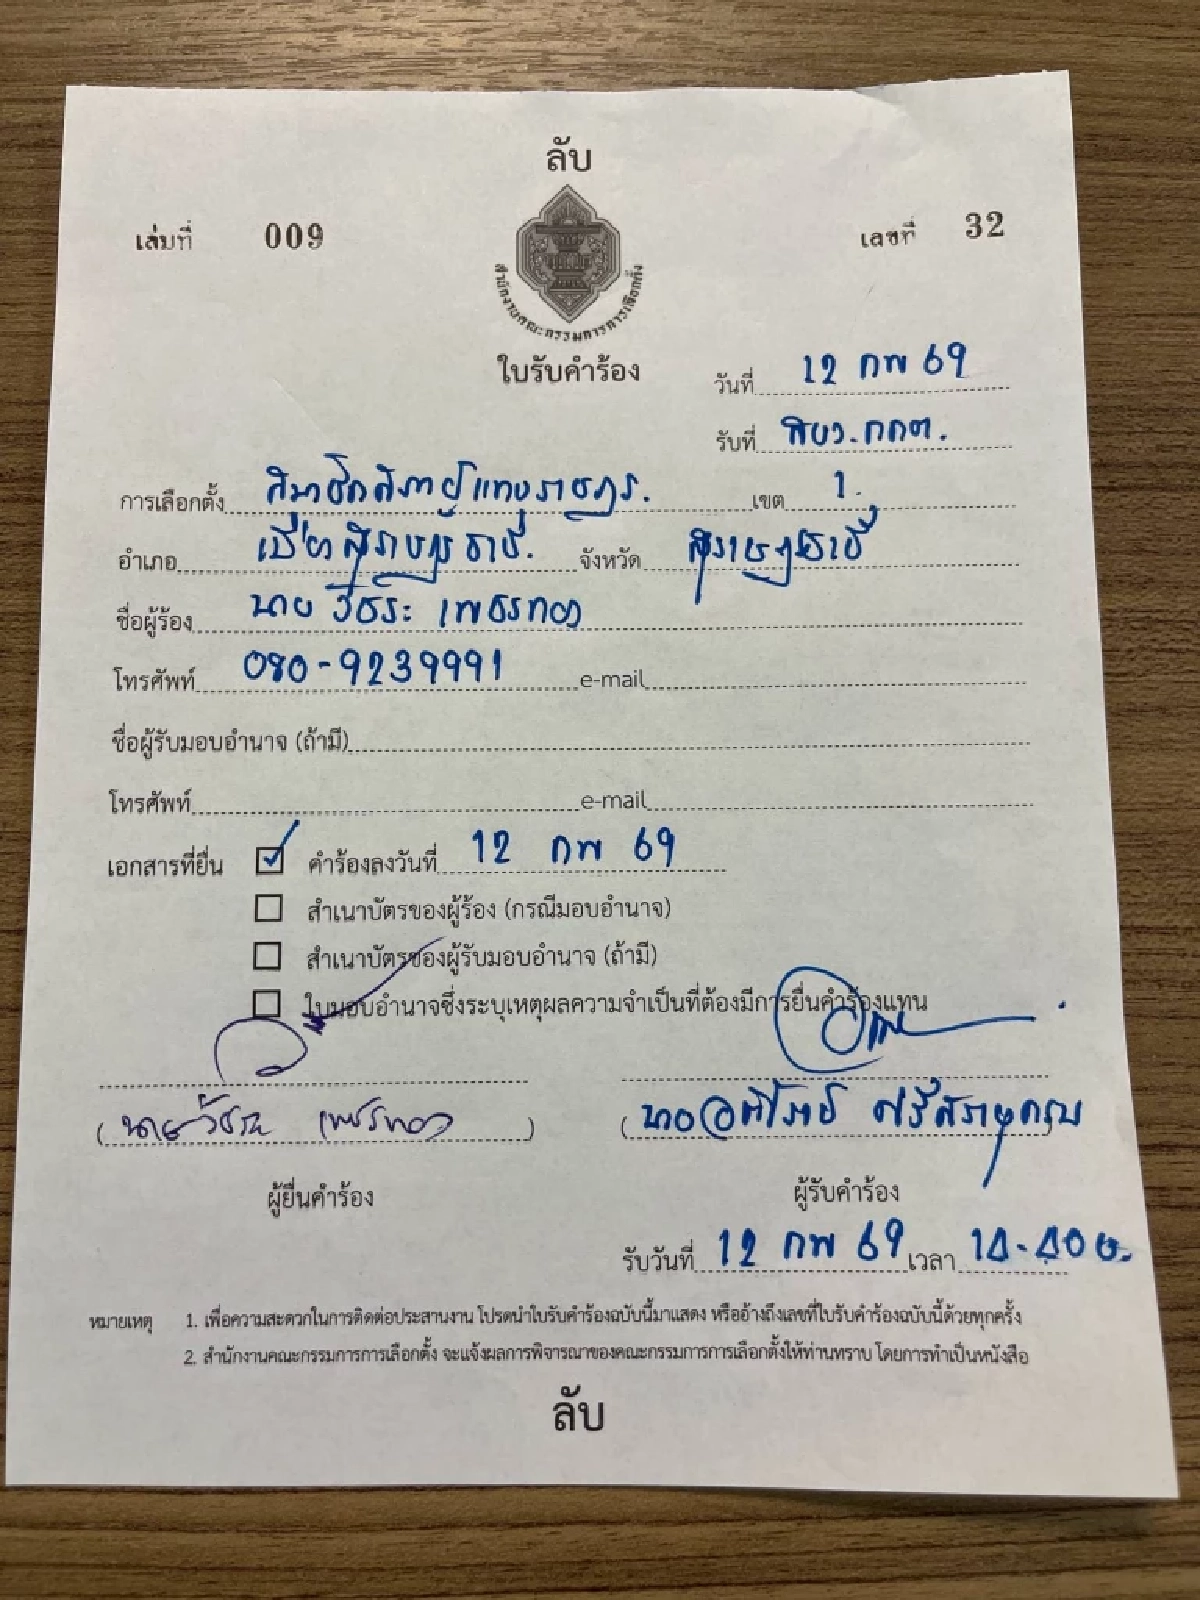 ลับ
เล่มที่ 009
เลขที่ 32
สำนักงานคณะกรรมการการเลือกตั้ง
ใบรับคำร้อง
วันที่ 12 กพ 69
รับที่ สบว.กกต.
การเลือกตั้ง สมาชิกสภาผู้แทนราษฎร. เขต 1.
อำเภอ เมืองสุราษฎร์ธานี. จังหวัด สุราษฎร์ธานี
ชื่อผู้ร้อง นาย วัชระ เพชรทอง
โทรศัพท์ 080-9239991 e-mail
ชื่อผู้รับมอบอำนาจ (ถ้ามี)
โทรศัพท์ e-mail
เอกสารที่ยื่น ☑ คำร้องลงวันที่ 12 กพ 69
☐ สำเนาบัตรของผู้ร้อง (กรณีมอบอำนาจ)
☐ สำเนาบัตรของผู้รับมอบอำนาจ (ถ้ามี)
☐ ใบมอบอำนาจซึ่งระบุเหตุผลความจำเป็นที่ต้องมีการยื่นคำร้องแทน
(นายวัชระ เพชรทอง) (นาย
ผู้ยื่นคำร้อง ผู้รับคำร้อง
รับวันที่ 12 กพ 69 เวลา 14.40 น.
หมายเหตุ 1. เพื่อความสะดวกในการติดต่อประสานงาน โปรดนำใบรับคำร้องฉบับนี้มาแสดง หรืออ้างถึงเลขที่ใบรับคำร้องฉบับนี้ด้วยทุกครั้ง
2. สำนักงานคณะกรรมการการเลือกตั้ง จะแจ้งผลการพิจารณาของคณะกรรมการการเลือกตั้งให้ท่านทราบ โดยการทำเป็นหนังสือ
ลับ